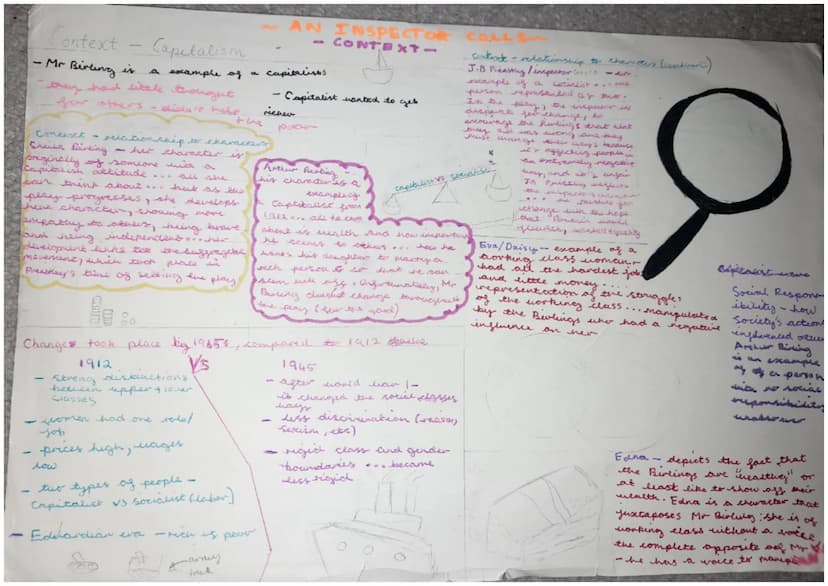 ~ AN INSPECTOR CALLS ~
- CONTEXT -
Context - Capitalism
- Mr Birling is a example of a capitalists
- they had little thought
for others - didn't help
the poor
- Capitalist wanted to get
richer
Context - relationship to characters
Sheila Birling - her character is
originally of someone with a
capitalist attitude... all she
can think about... but as the
play progresses, she develops
her character, showing more
empathy to others, being brave
and being independent... her
development links to the suffragette
movement, which took place in
Priestley's time of setting the play
Arthur Birling -
his character is a
example of
Capitalist from
1912... all he cares
about is wealth and how important
he seems to others... how he
wants his daughter to marry a
rich person so that he can
seem well off. Unfortunately, Mr
Birling doesn't change throughout
the play
capitalist vs socialist
Context - relationship to characters
J.B Priestley / inspector
example of a socialist...
person represented as
In the play, the inspector is
desperate for change, to
encourage the Birlings that what
they did was wrong and they
must change their ways because
it's affecting people in
an extremely negative
way, and it's unfair
change with the hope
that
Eva/Daisy - example of a
working class woman -
had all the hardest job
and little money...
representation of the struggles
of the working class... manipulated
by the Birlings who had a negative
influence on her
Social Respons-
ibility - how
society's actions
influenced others
Arthur Birling
is an example
of a person
with no social
responsibility
whatsoever
Changes took place by 1945, compared to 1912
1912
VS
1945
- strong distinctions
between upper & lower
classes
- women had one role/
job
- prices high, wages
low
- two types of people -
Capitalist VS Socialist (labor)
- Edwardian era - rich vs poor
- after world war 1 -
it changed the social classes
ways
- less discrimination (racism,
sexism, etc)
- rigid class and gender
boundaries... became
less rigid
Edna - depicts the fact that
the Birlings are "wealthy" or
at least like to show off their
wealth. Edna is a character that
juxtaposes Mr Birling: she is of
working class without a voice
the complete opposite of Mr
- he has a voice to